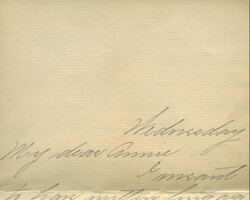 Wednesday
My dear Annie
I meant
to have written long ago